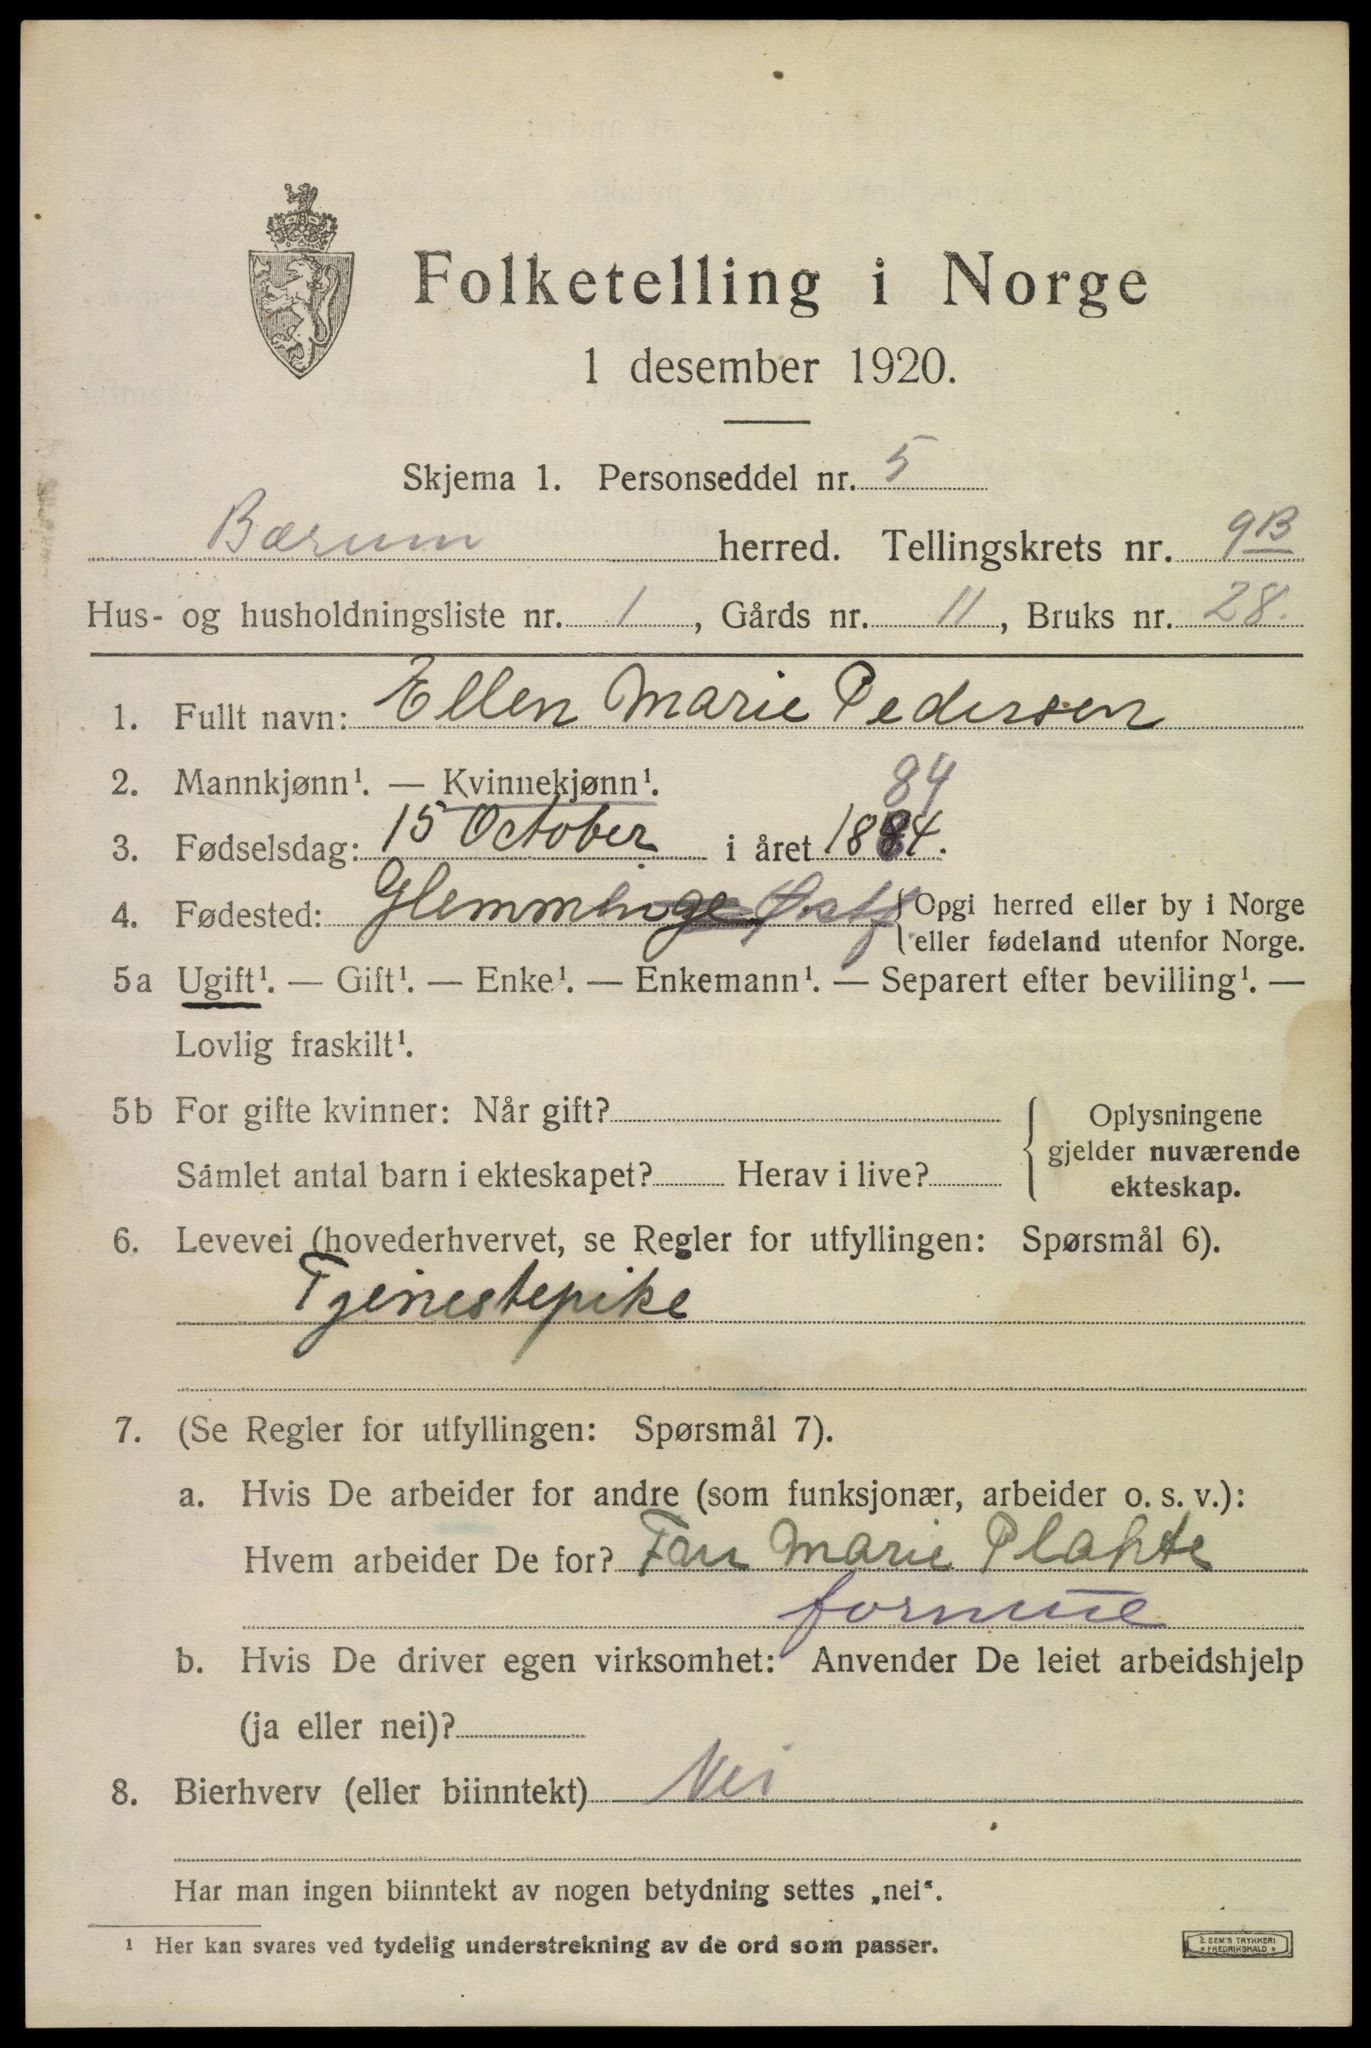 Folketelling i Norge
1 desember 1920.
Skjema 1. Personseddel nr. 5
Bærum herred. Tellingskrets nr. 9B
Hus- og husholdningsliste nr. 1, Gårds nr. 11, Bruks nr. 28.
1. Fullt navn: Ellen Marie Pedersen
2. Mannkjønn¹. — Kvinnekjønn¹. 84
3. Fødselsdag: 15 October i året 1884.
4. Fødested: Glemminge Østf. Opgi herred eller by i Norge
eller fødeland utenfor Norge.
5a Ugift¹. — Gift¹. — Enke¹. — Enkemann¹. — Separert efter bevilling¹. —
Lovlig fraskilt¹.
5b For gifte kvinner: Når gift? Oplysningene
gjelder nuværende
Samlet antal barn i ekteskapet? Herav i live? ekteskap.
6. Levevei (hovederhvervet, se Regler for utfyllingen: Spørsmål 6).
Tjenestepike
7. (Se Regler for utfyllingen: Spørsmål 7).
a. Hvis De arbeider for andre (som funksjonær, arbeider o. s. v.):
Hvem arbeider De for? Fru Marie Plahte
formue
b. Hvis De driver egen virksomhet: Anvender De leiet arbeidshjelp
(ja eller nei)?
8. Bierhverv (eller biinntekt) Nei
Har man ingen biinntekt av nogen betydning settes „nei“.
¹ Her kan svares ved tydelig understrekning av de ord som passer.
E. SEM'S TRYKKERI
FREDRIKSHALD